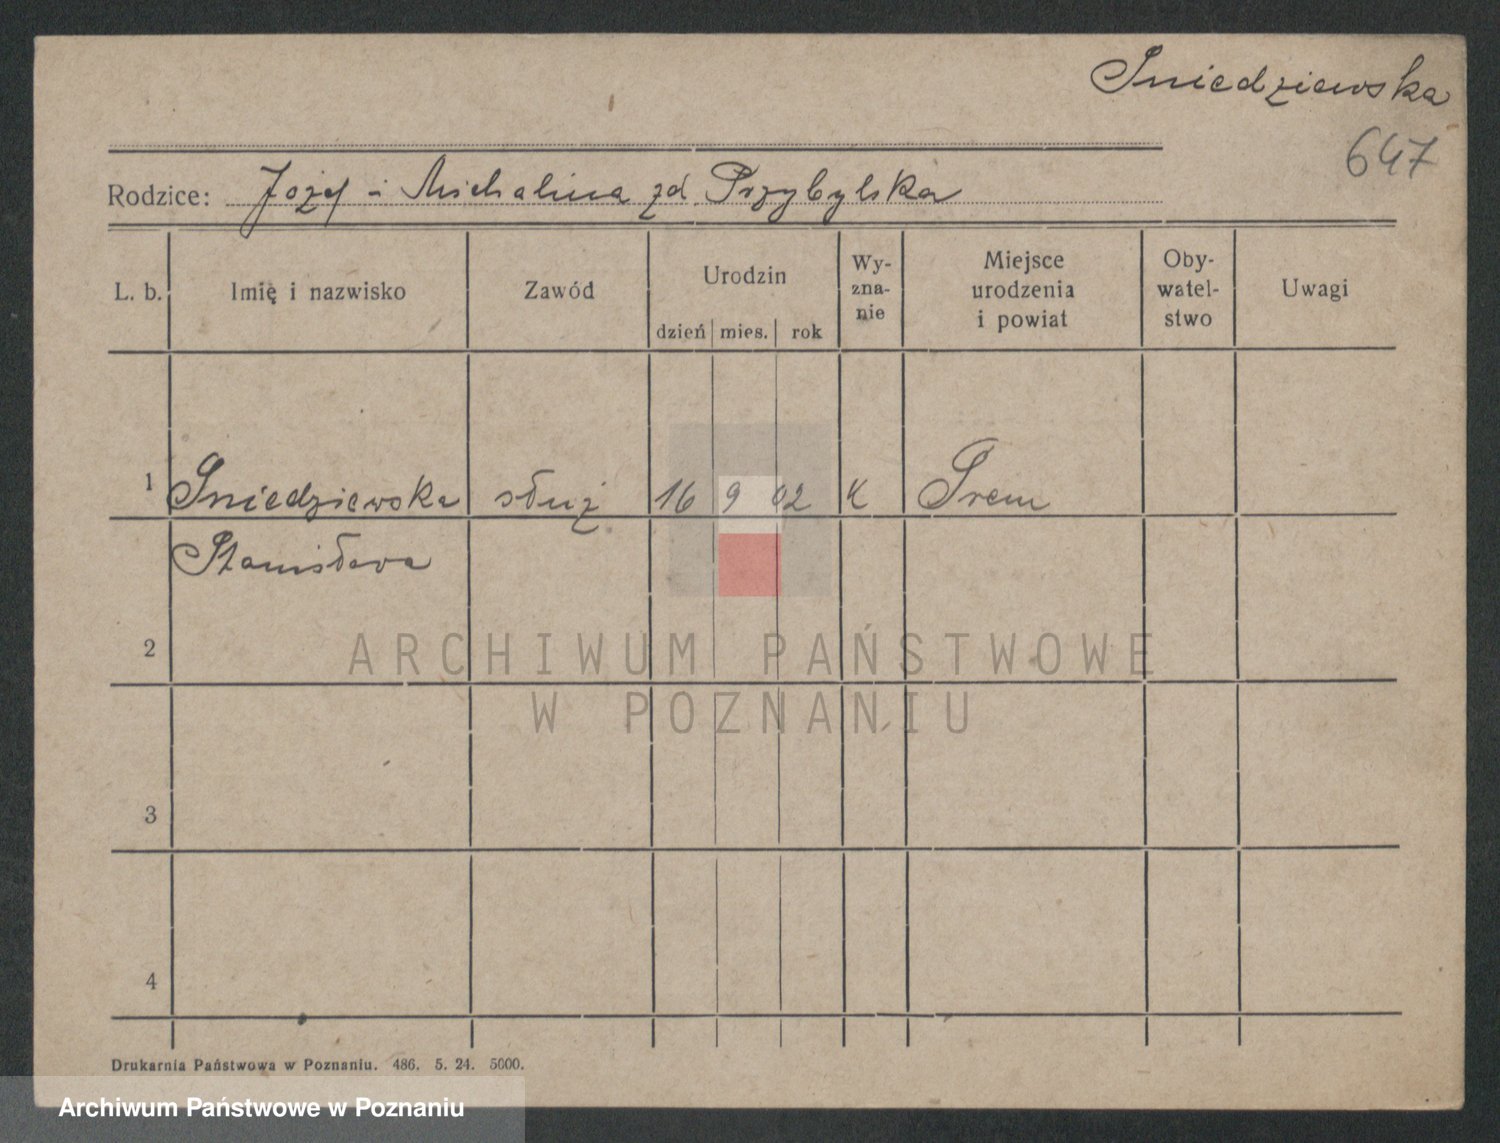 Sniedziewska
647
Rodzice: Jozef i Michalina zd Przybylska
L. b. Imię i nazwisko Zawód Urodzin dzień mies. rok Wy-zna-nie Miejsce urodzenia i powiat Oby-watel-stwo Uwagi
1 Sniedziewska służ 16 9 02 K Srem
Stanisława
2
3
4
Drukarnia Państwowa w Poznaniu. 486. 5. 24. 5000.
ARCHIWUM PAŃSTWOWE
W POZNANIU
Archiwum Państwowe w Poznaniu